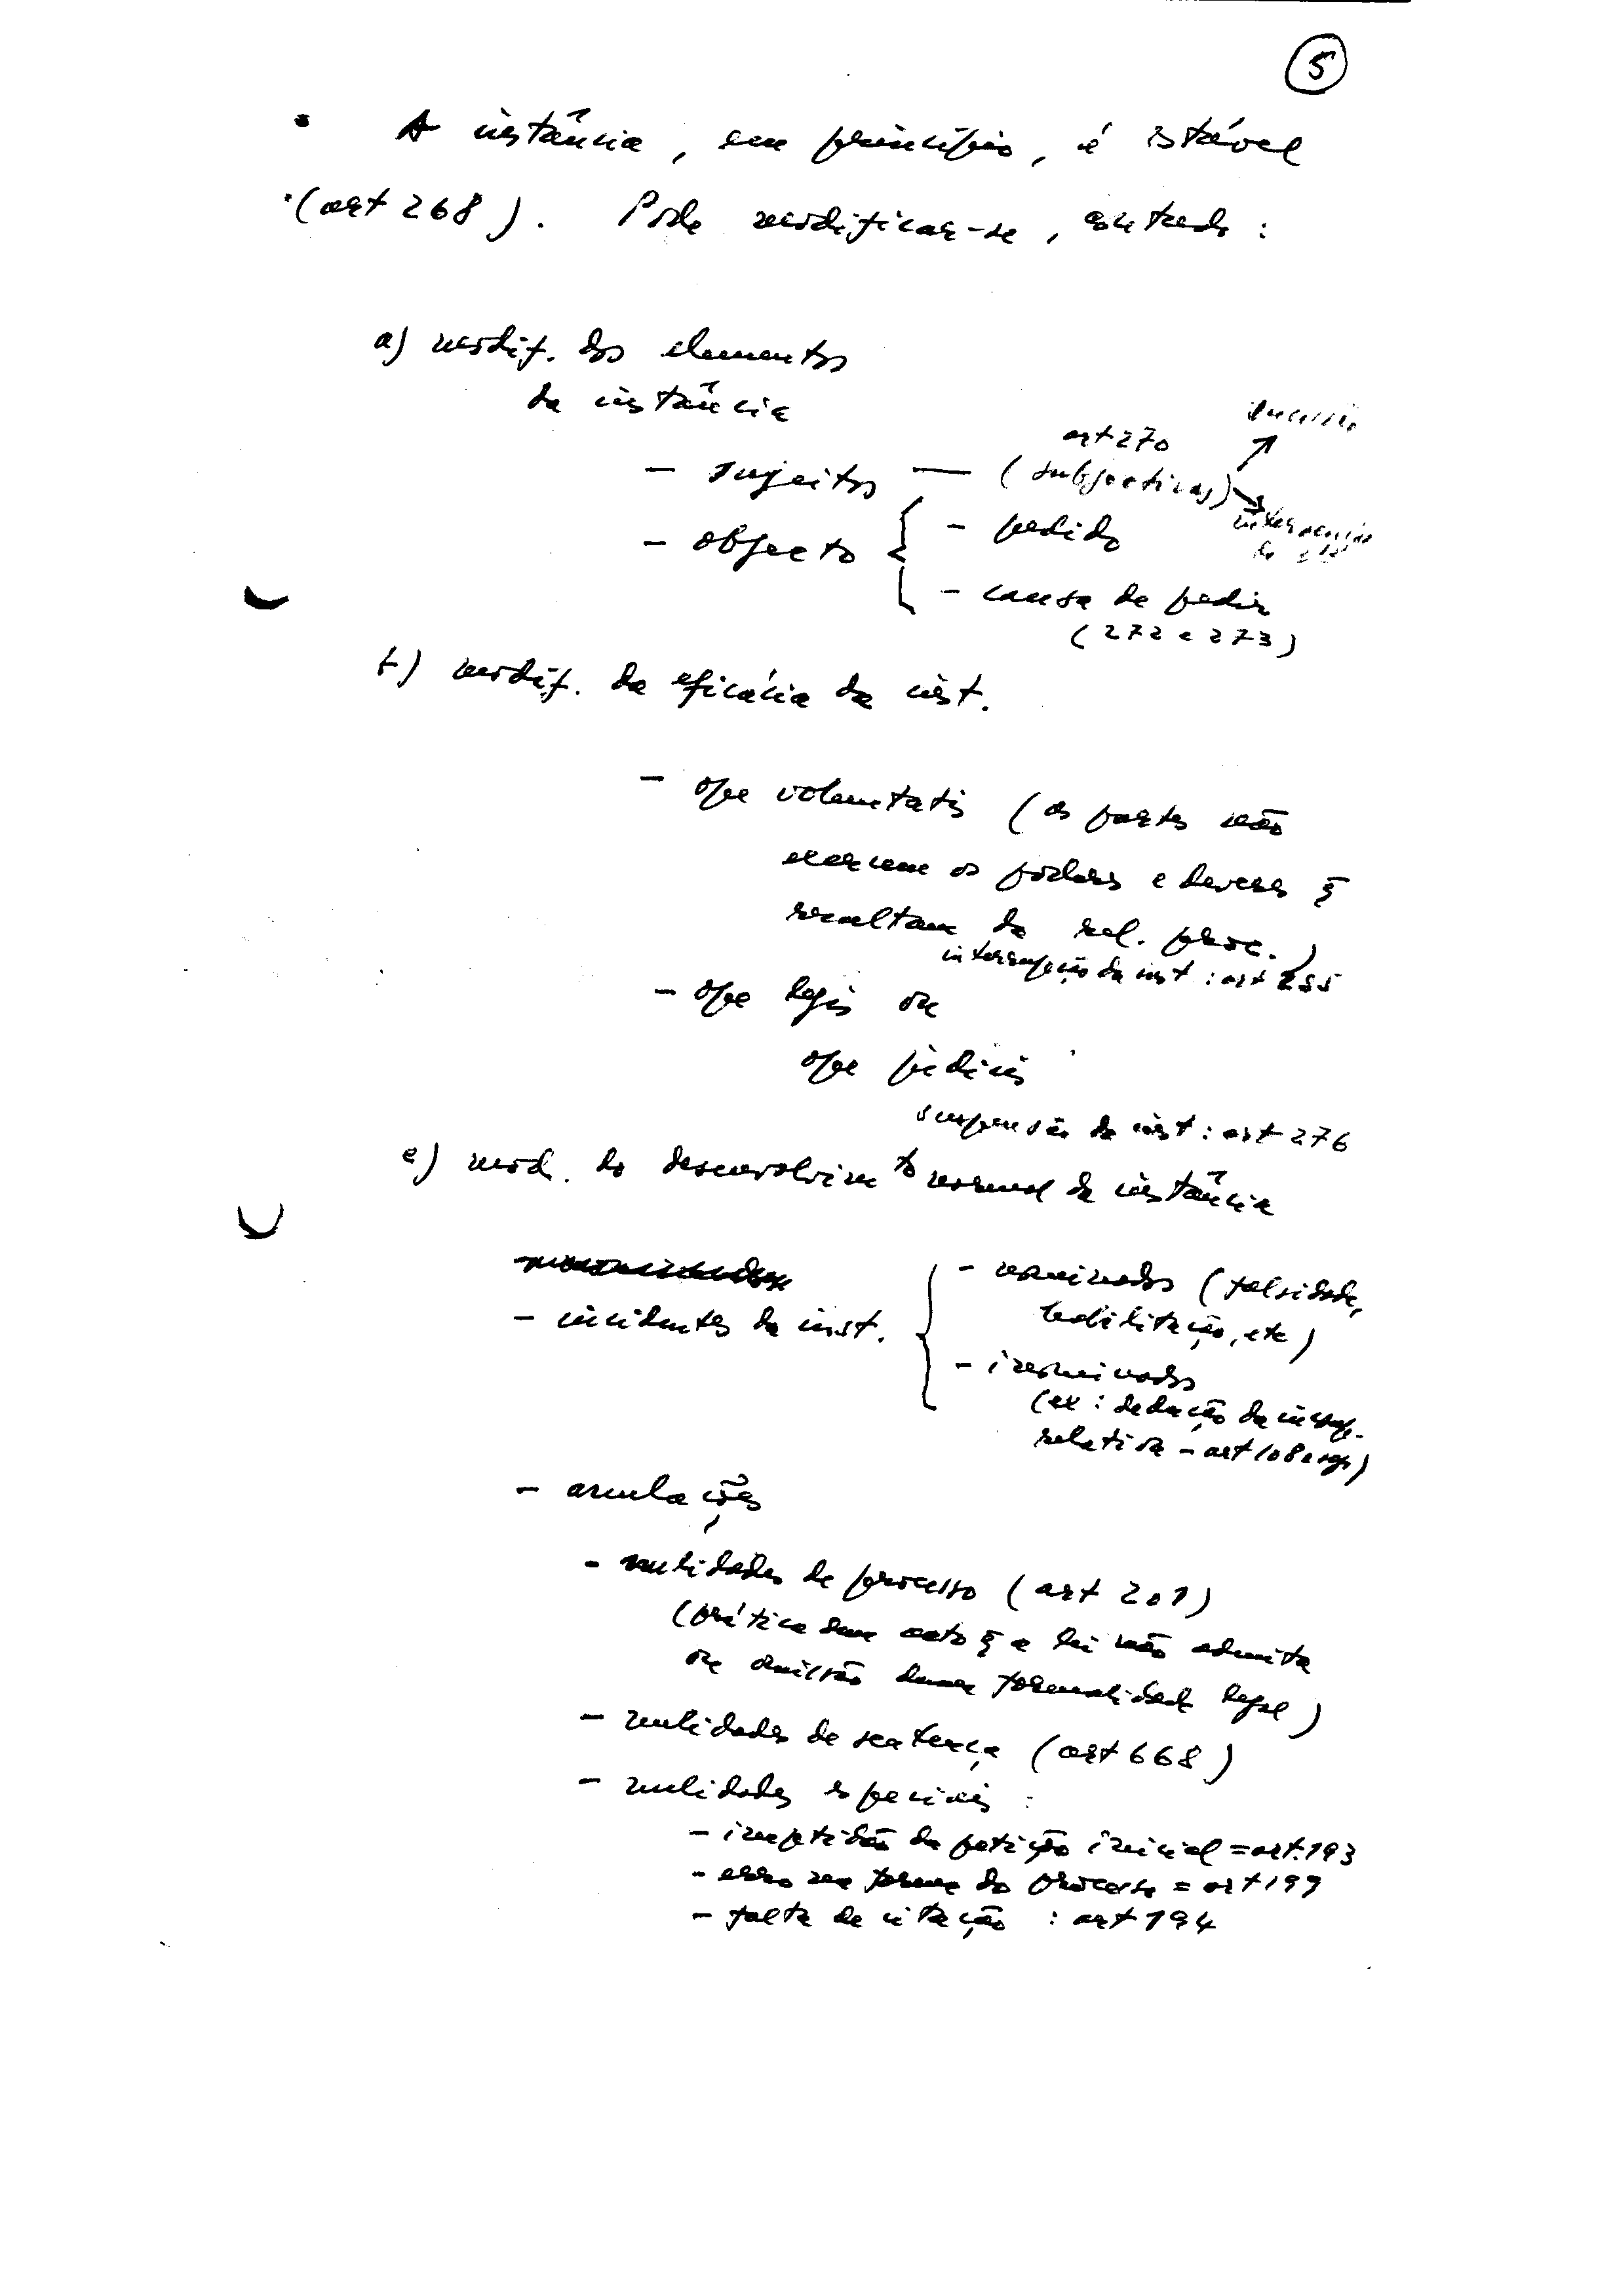 5
• A instância, em princípio, é estável
(art 268). Pode modificar-se, contudo:
a) modif. dos elementos
da instância
sucessão
art 270
- sujeitos — (subjectivas)
intervenção
de
- objecto { - pedido
- causa de pedir
(272 e 273)
b) modif. da eficácia da inst.
- ope voluntatis (as partes não
exercem os poderes e deveres q̃
resultam da rel. proc.)
interrupção da inst : art 285
- ope legis ou
ope judicis
suspensão da inst : art 276
c) mod. do desenvolvimto normal da instância
- incidentes da inst. { - nominados (falsidade,
habilitação, etc)
- inominados
(ex : dedução da incomp.
relativa - art 108 e sgs)
- anulações
- nulidades de processo (art 201)
(prática dum acto q̃ a lei não admita
ou omissão duma formalidade legal)
- nulidades de sentença (art 668)
- nulidades especiais :
- ineptidão da petição inicial = art. 193
- erro na forma do processo = art 199
- falta de citação : art 194